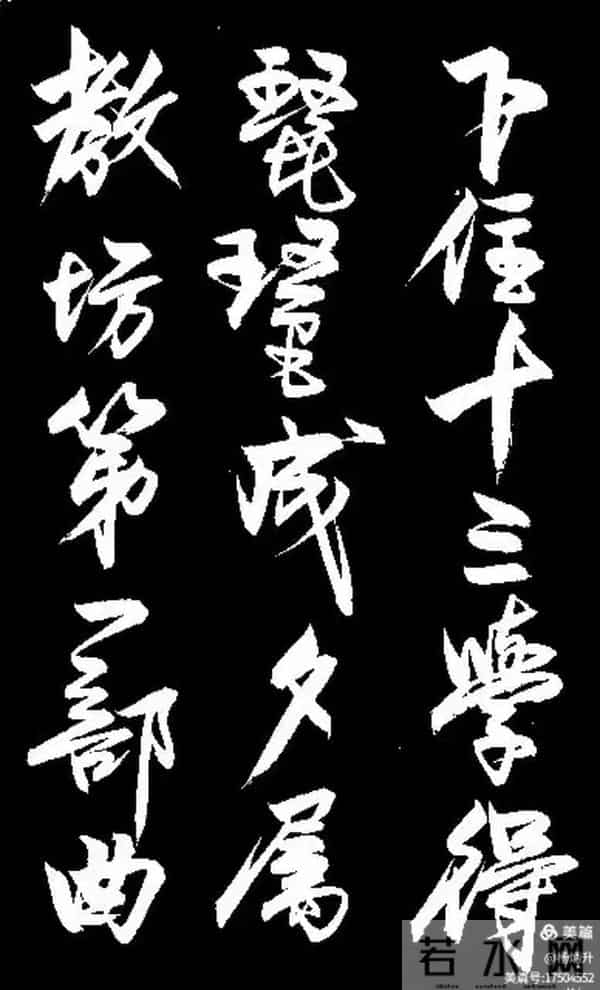 下住十三學得
琵琶成夕属
教坊第一部曲
美篇
若水网
美篇号:17504552